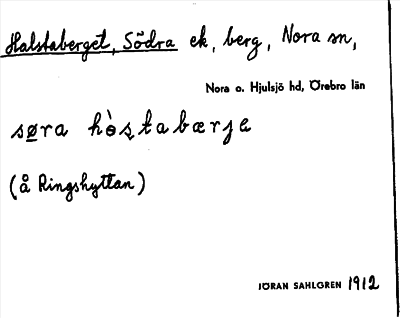 Halstaberget, Södra ek, berg, Nora sn,
Nora o. Hjulsjö hd, Örebro län
søra hòștabærje
(å Ringshyttan)
JÖRAN SAHLGREN 1912